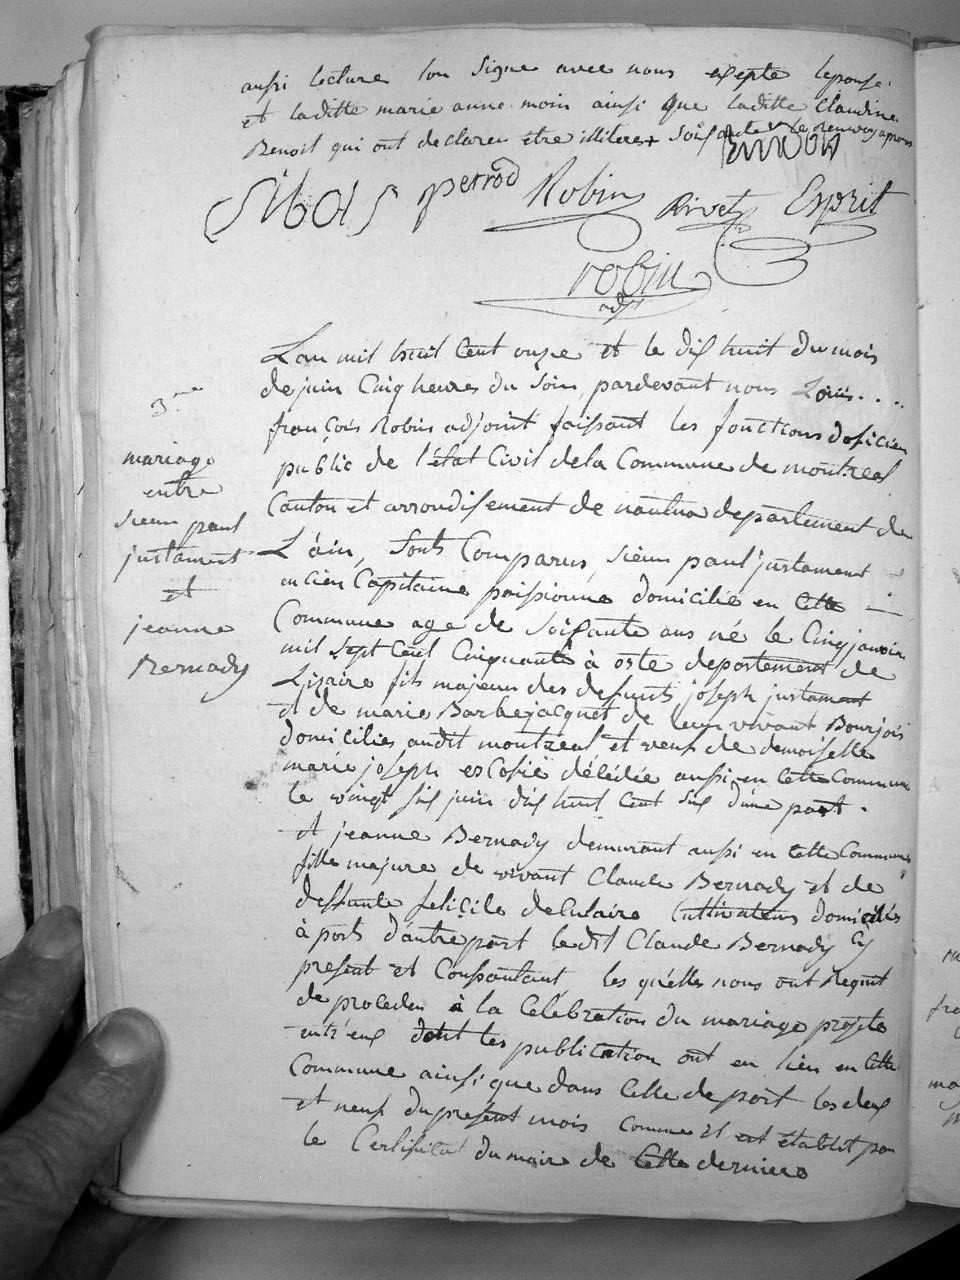 aussi lecture lon signe avec nous exepte lepouse
et laditte marie anne moin ainsi que laditte Claudine
Benoit qui ont declarer etre illiteres + Soisante le renvoy aprouv
Sibois perrod Robin Rivet Esprit
robin
adjt
L'an mil huit Cent onze et le dix huit du mois
de juin Cinq heures du Soir, pardevant nous Louis....
françois Robin adjoint faissant les fonctions doficier
public de l'état Civil de la Commune de montreal
Canton et arrondisement de nantua departement de
L'ain, Sont Comparus, sieur paul justament
encien Capitaine paissionne domicilie en Cette
Commune age de Soisante ans né le Cinq janvier
mil Sept Cent Cinquante à oste departement de
Lizaire fils majeur des defunts joseph justament
et de marie Barbejacquet de leur vivant Bourjois
domicilies audit montreal et veuf de demoiselle
marie joseph escofie délédée aussi en Cette Commune
le vingt six juin dix huit Cent six d'une part.
et jeanne Bernady demurant aussi en Cette Commune
fille majure de vivant Claude Bernady et de
deffunte Cultivateurs domiciliés
à port d'autre part ledit Claude Bernady Cy
present et Consantant, les qu'elles nous ont Requit
de proceder à la Célébration du mariage projete
entr'eux dont les publication ont eu lieu en Cette
Commune ainsi que dans Celle de port les deux
et neuf du present mois Comme il est établit par
le Certificat du maire de Cette derniere
3me
mariage
entre
sieur paul
justament
et
jeanne
Bernady